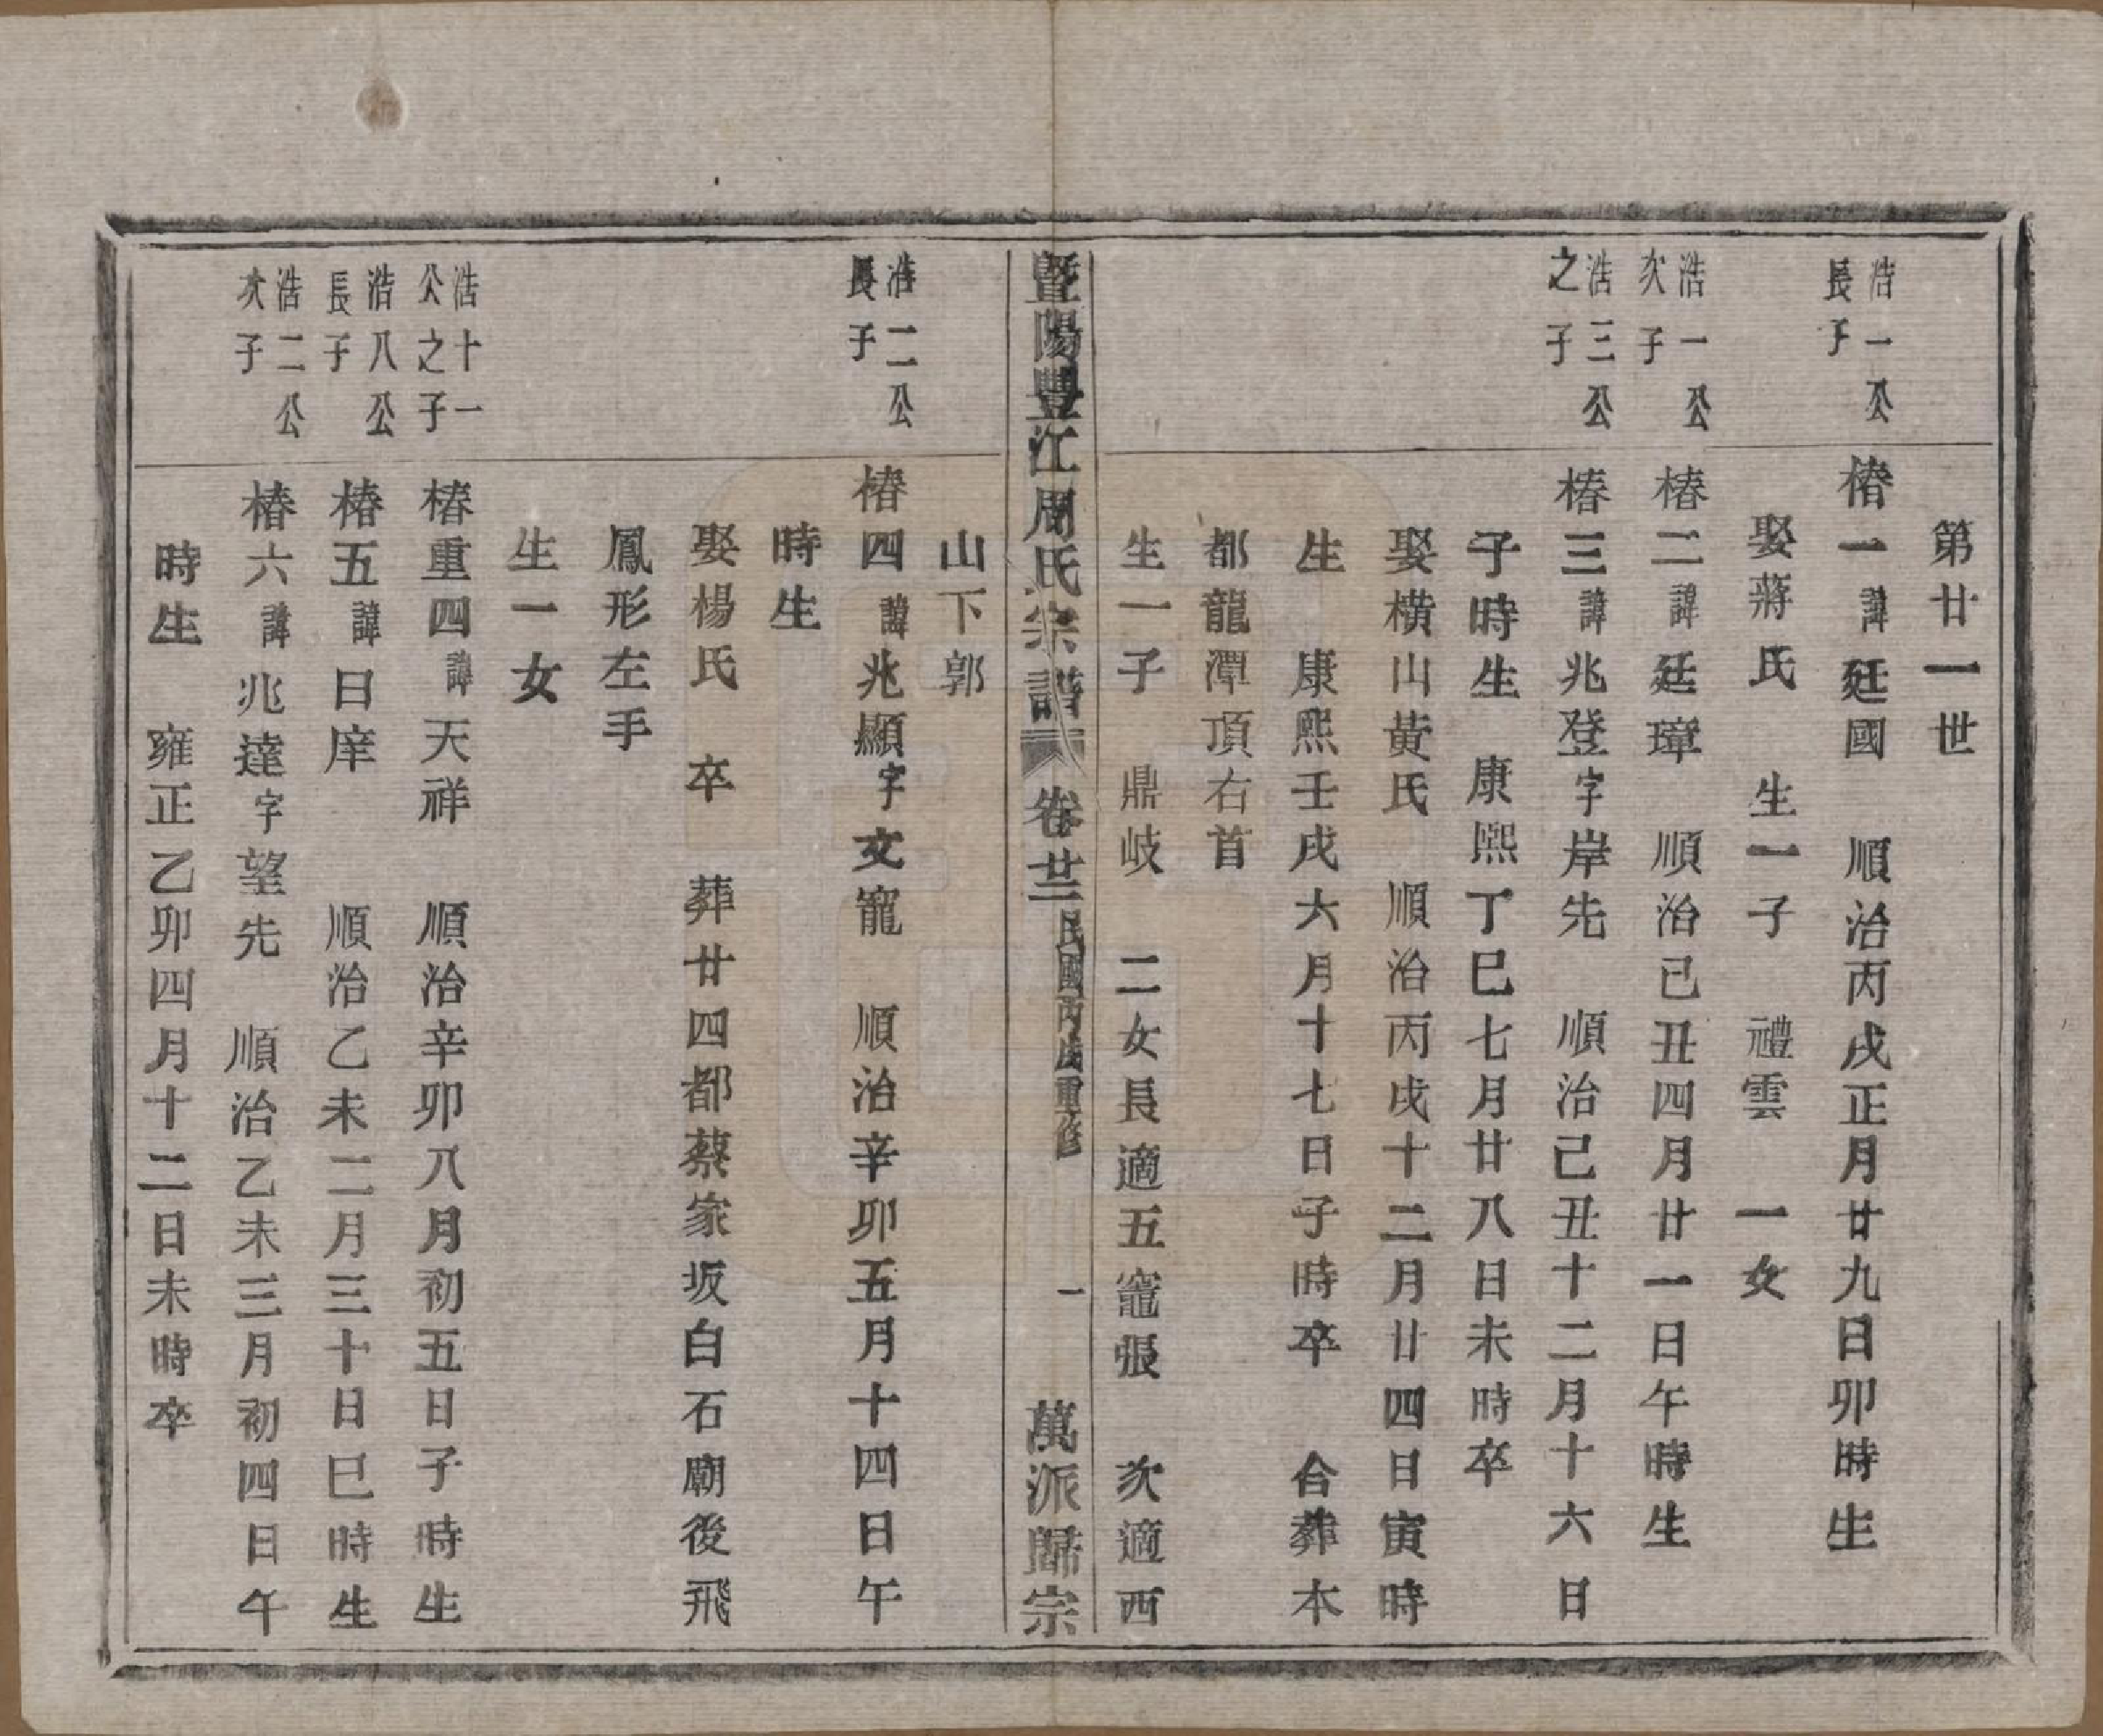 第廿一世
浩一公
長子
椿一諱廷國 順治丙戌正月廿九日卯時生
娶蔣氏 生一子 禮雲 一女
浩一公
次子
椿二諱廷璋 順治己丑四月廿一日午時生
浩三公
之子
椿三諱兆登字岸先 順治己丑十二月十六日
子時生 康熙丁巳七月廿八日未時卒
娶橫山黃氏 順治丙戌十二月廿四日寅時
生 康熙壬戌六月十七日子時卒 合葬本
都龍潭項右首
生一子 鼎岐 二女長適五竈張 次適西
暨陽豐江周氏宗譜 卷廿三 民國丙戌重修 一 萬派歸宗
山下郭
浩二公
長子
椿四諱兆顯字文寵 順治辛卯五月十四日午
時生
娶楊氏 卒 葬廿四都蔡家坂白石廟後飛
鳳形左手
生一女
浩十一
公之子
椿重四諱天祥 順治辛卯八月初五日子時生
浩八公
長子
椿五諱日庠 順治乙未二月三十日巳時生
浩二公
次子
椿六諱兆達字望先 順治乙未三月初四日午
時生 雍正乙卯四月十二日未時卒